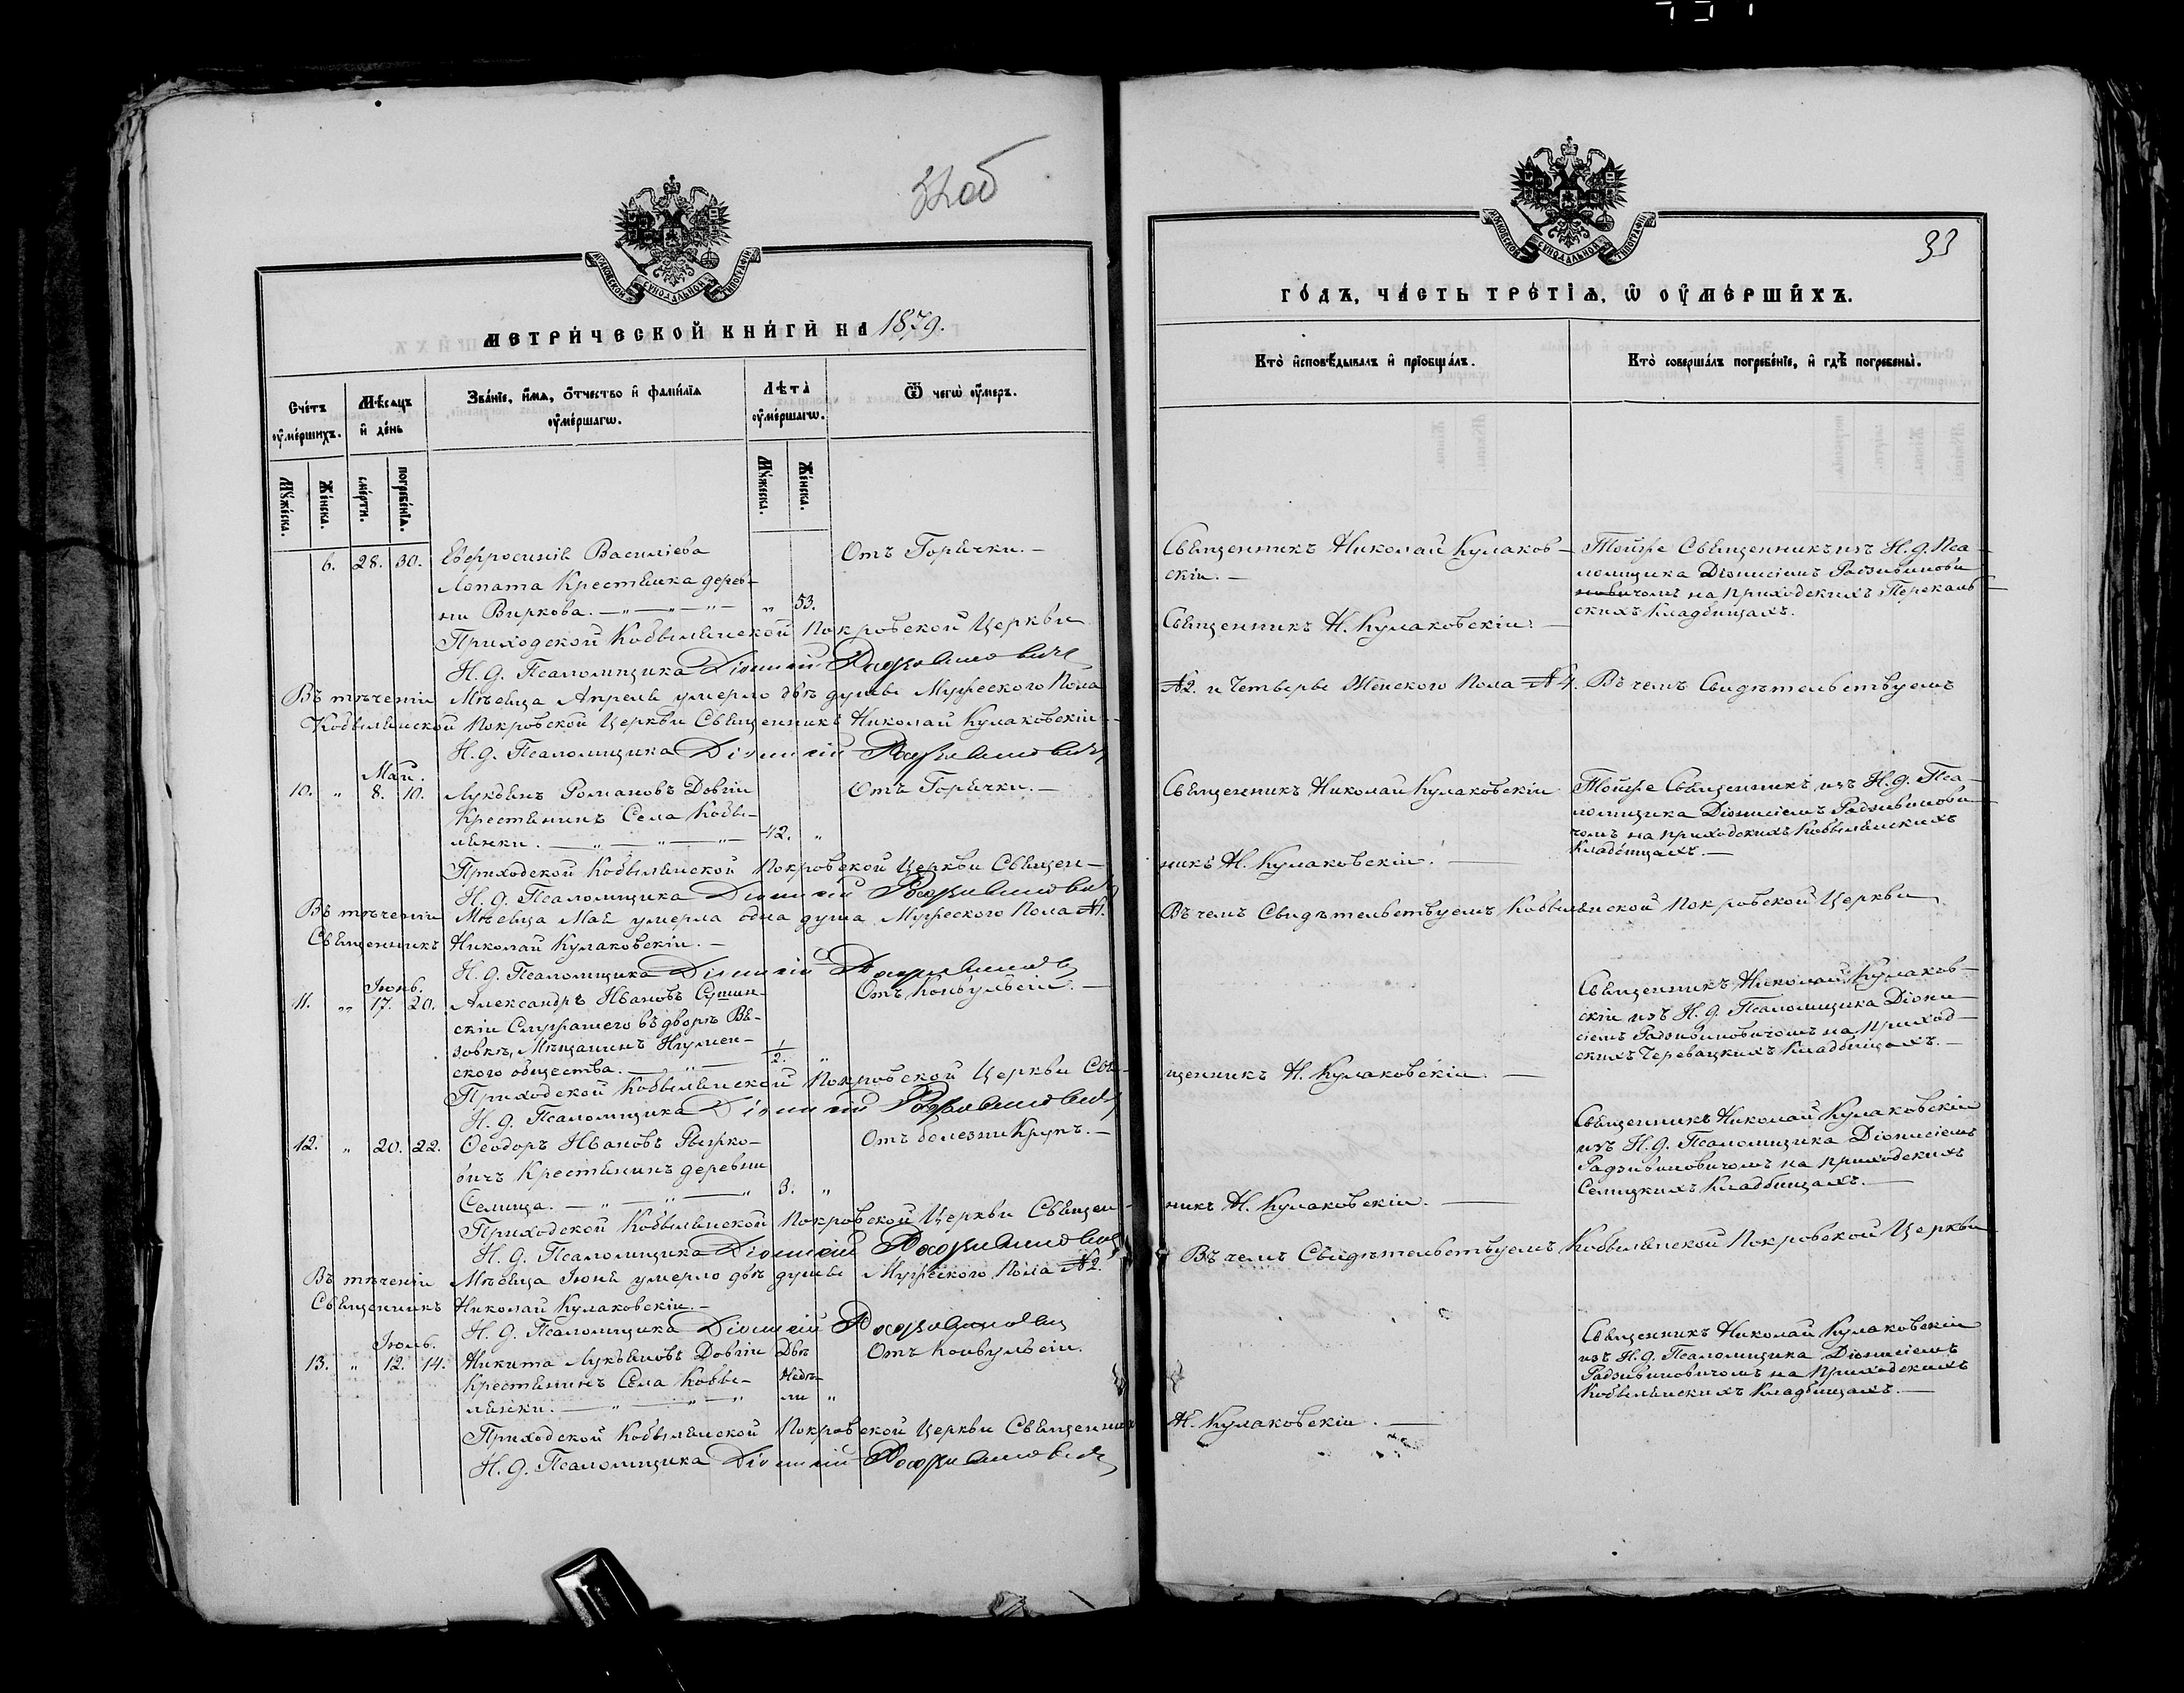 32об
МОСКОВСКОЙ СѴНОДАЛЬНОЙ ТИПОГРАФІИ
МЕТРИ́ЧЕСКОЙ КНИ́ГИ НА 1879.
Сче́тъ оу҆ме́ршихъ.
Мѣ́сѧцъ и҆ де́нь
Зва́нїе, и҆́мѧ, ѻ҆́тчество и҆ фами́лїѧ оу҆ме́ршагѡ.
Лѣта̀ оу҆ме́ршагѡ.
Ѿ чегѡ̀ оу҆́меръ.
Мꙋ́жеска.
Же́нска.
сме́рти.
погребе́нїѧ.
Мꙋ́жеска.
Же́нска.
6. 28. 30. Евфросинія Василіева Отъ Горячки.—
Лопата Крестянка дерев-
ни Виркова.—„—„—„— „ 53.
Приходской Кобылянской Покровской Церкви
Н. д. Псаломщика Діонисій Радзивиновичъ
Въ теченіи Мѣсяца Апреля умерло двѣ душы Мужеского Пола
Кобылянской Покровской Церкви Священникъ Николай Кулаковскіи.—
Н. д. Псаломщика Діонисій Радзивиновичъ
Май.
10. „ 8. 10. Лукьянъ Романовъ Довгіи Отъ Горячки.—
Крестянинъ Села Кобы-
лянки.—„—„—„— 42. „
Приходской Кобылянской Покровской Церкви Священ-
Н. д. Псаломщика Діонисій Радзивиновичъ
Въ теченіи Мѣсяца Мая умерла одна душа Мужеского Пола №1.
Священникъ Николай Кулаковскіи.—
Н. д. Псаломщика Діонисій Радзивиновичъ
Іюнь.
11. „ 17. 20. Александръ Ивановъ Сушин- Отъ Конвульсіи.—
скіи Служащего въ дворѣ Вя-
зовкѣ, Мѣщанинъ
ского общества.—„— 1/2. „
Приходской Кобылянской Покровской Церкви Свя-
Н. д. Псаломщика Діонисій Радзивиновичъ
12. „ 20. 22. Ѳеодоръ Ивановъ Рыжко- Отъ болезни Крупъ.—
вичъ Крестянинъ деревни
Селища.—„—„—„ 3. „
Приходской Кобылянской Покровской Церкви Священ-
Н. д. Псаломщика Діонисій Радзивиновичъ
Въ теченіи Мѣсяца Іюня умерло двѣ душы Мужеского Пола №2.
Священникъ Николай Кулаковскіи.—
Н. д. Псаломщика Діонисій Радзивиновичъ
Іюль.
13. „ 12. 14. Никита Лукьяновъ Довгіи Двѣ Отъ Конвульсіи.
Крестянинъ Села Кобы- Недѣ-
лянки.—„—„—„ ли „
Приходской Кобылянской Покровской Церкви Священникъ
Н. д. Псаломщика Діонисій Радзивиновичъ
33
МОСКОВСКОЙ СѴНОДАЛЬНОЙ ТИПОГРАФІИ
ГО́ДЪ, ЧА́СТЬ ТРЕ́ТІѦ, Ѡ҆ ОУ҆МЕ́РШИХЪ.
Кто̀ и҆сповѣ́дывалъ и҆ прїѡбща́лъ.
Кто̀ соверша́лъ погребе́нїе, и҆ гдѣ̀ погребены̀.
Священникъ Николай Кулаков-
скіи.—
Тойже Священникъ изъ Н. д. Пса-
ломщика Діонисіемъ Радзивинови-
чомъ на приходскихъ Перекаль-
скихъ Кладбищахъ.
Священникъ Н. Кулаковскіи.—
№2. и Четверы Женского Пола №4. Въ чемъ Свидѣтельствуемъ
Священникъ Николай Кулаковскіи
Тойже Священникъ, изъ Н. д. Пса-
ломщика Діонисіемъ Радзивинови-
чомъ на приходскихъ Кобылянскихъ
Кладбищахъ.—
никъ Н. Кулаковскіи.—
Въ чемъ Свидѣтельствуемъ, Кобылянской Покровской Церкви
Священникъ Николай Кулаков-
скіи изъ Н. д. Псаломщика Діони-
сіемъ Радзивиновичомъ на приход-
скихъ Черевацкихъ Кладбищахъ.—
щенникъ Н. Кулаковскіи.—
Священникъ Николай Кулаковскіи
изъ Н. д. Псаломщика Діонисіемъ
Радзивиновичомъ на приходскихъ
Селицкихъ Кладбищахъ.—
никъ Н. Кулаковскіи.—
Въ чемъ Свидѣтельствуемъ, Кобылянской Покровской Церкви
Священникъ Николай Кулаковскіи
изъ Н. д. Псаломщика Діонисіемъ
Радзивиновичомъ на Приходскихъ
Кобылянскихъ Кладбищахъ.—
Н. Кулаковскіи.—